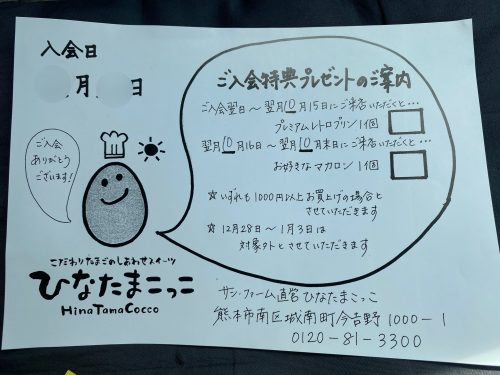 入会日
月 日
ご入会
ありがとう
ございます!
こだわりたまごのしあわせスイーツ
ひなたまこっこ
HinaTamaCocco
ご入会特典プレゼントのご案内
ご入会翌日～翌月10月15日にご来店いただくと…
プレミアムレトロプリン1個
翌月10月16日～翌月10月末日にご来店いただくと…
お好きなマカロン1個
☆いずれも1000円以上お買上げの場合と
させていただきます
☆12月28日～1月3日は
対象外とさせていただきます
サン・ファーム直営ひなたまこっこ
熊本市南区城南町今吉野1000-1
0120-81-3300